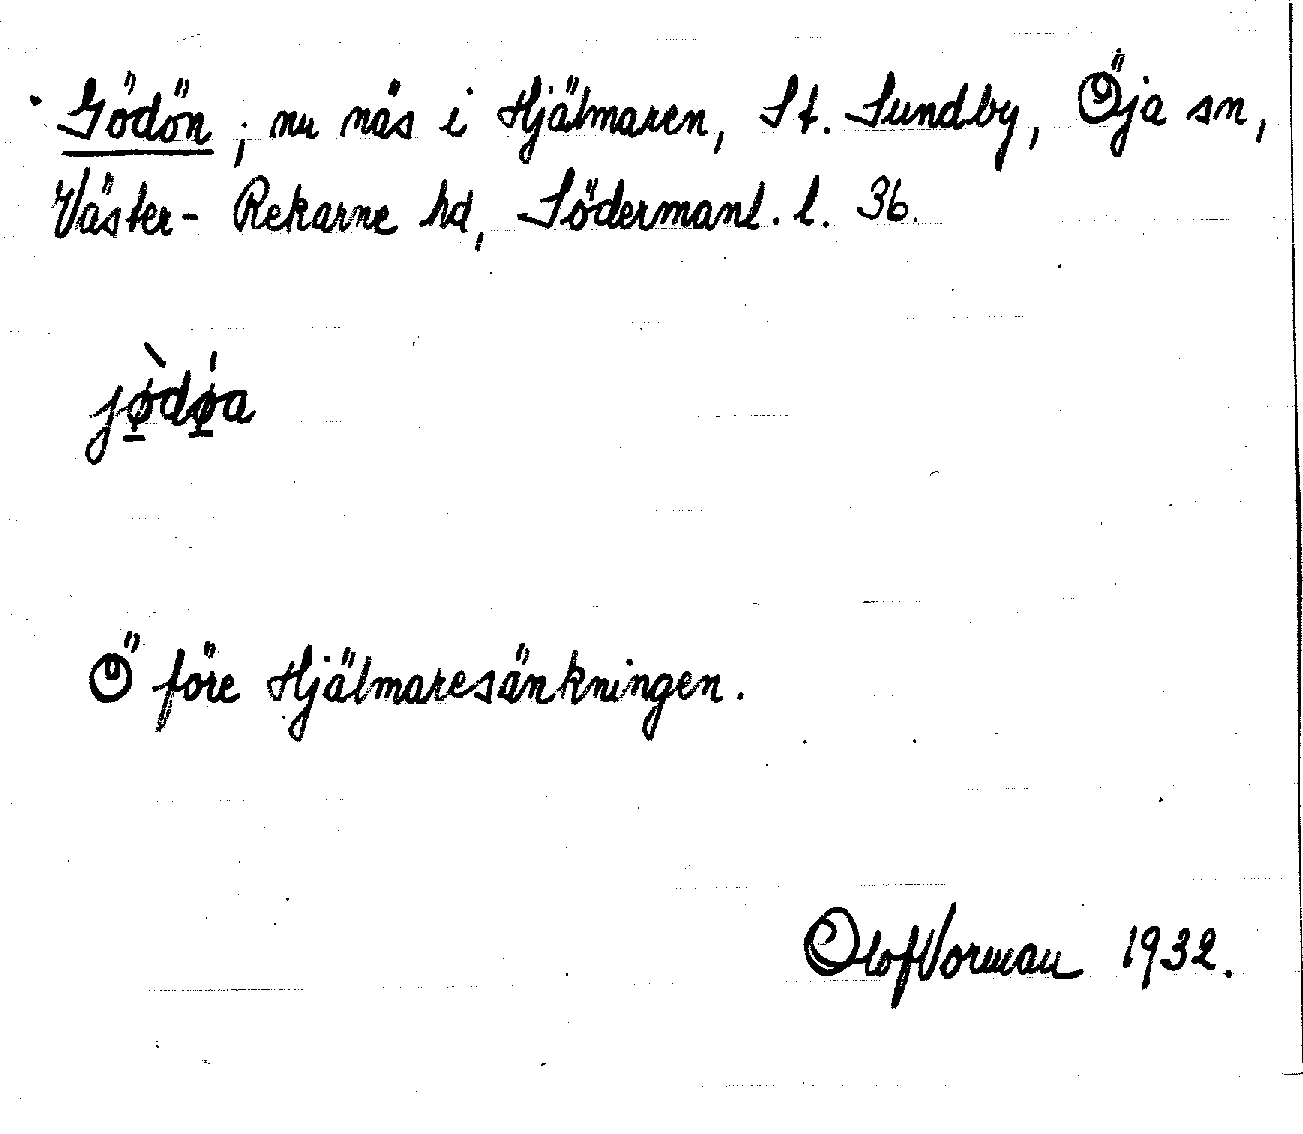 Gödön, nu näs i Hjälmaren, St. Sundby, Öja sn,
Väster-Rekarne hd, Södermanl. l. 36.
jø̀dø̍a
Ö före Hjälmaresänkningen.
Olof Vorman 1932.